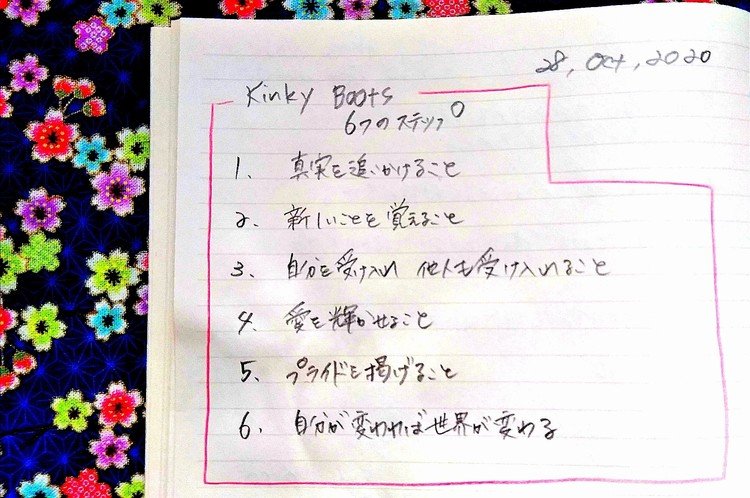 28, Oct, 2020
Kinky Boots
6つのステップ
1. 真実を追いかけること
2. 新しいことを覚えること
3. 自分を受け入れ 他人も受け入れること
4. 愛を輝かせること
5. プライドを掲げること
6. 自分が変われば世界が変わる